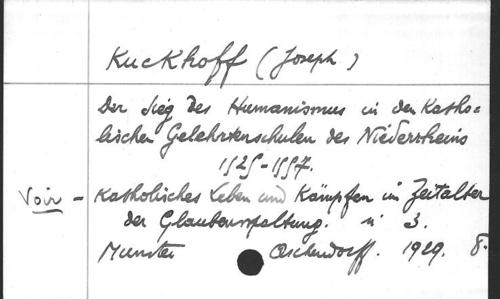 Kuckhoff (Joseph)
Der Sieg des Humanismus in den Katho=
lischen Gelehrtenschulen des Niederrheins
1525-1557.
Voir - Katholisches Leben und Kämpfen im Zeitalter
der Glaubensspaltung. n° 3.
Munster Aschendorff. 1929. 8.